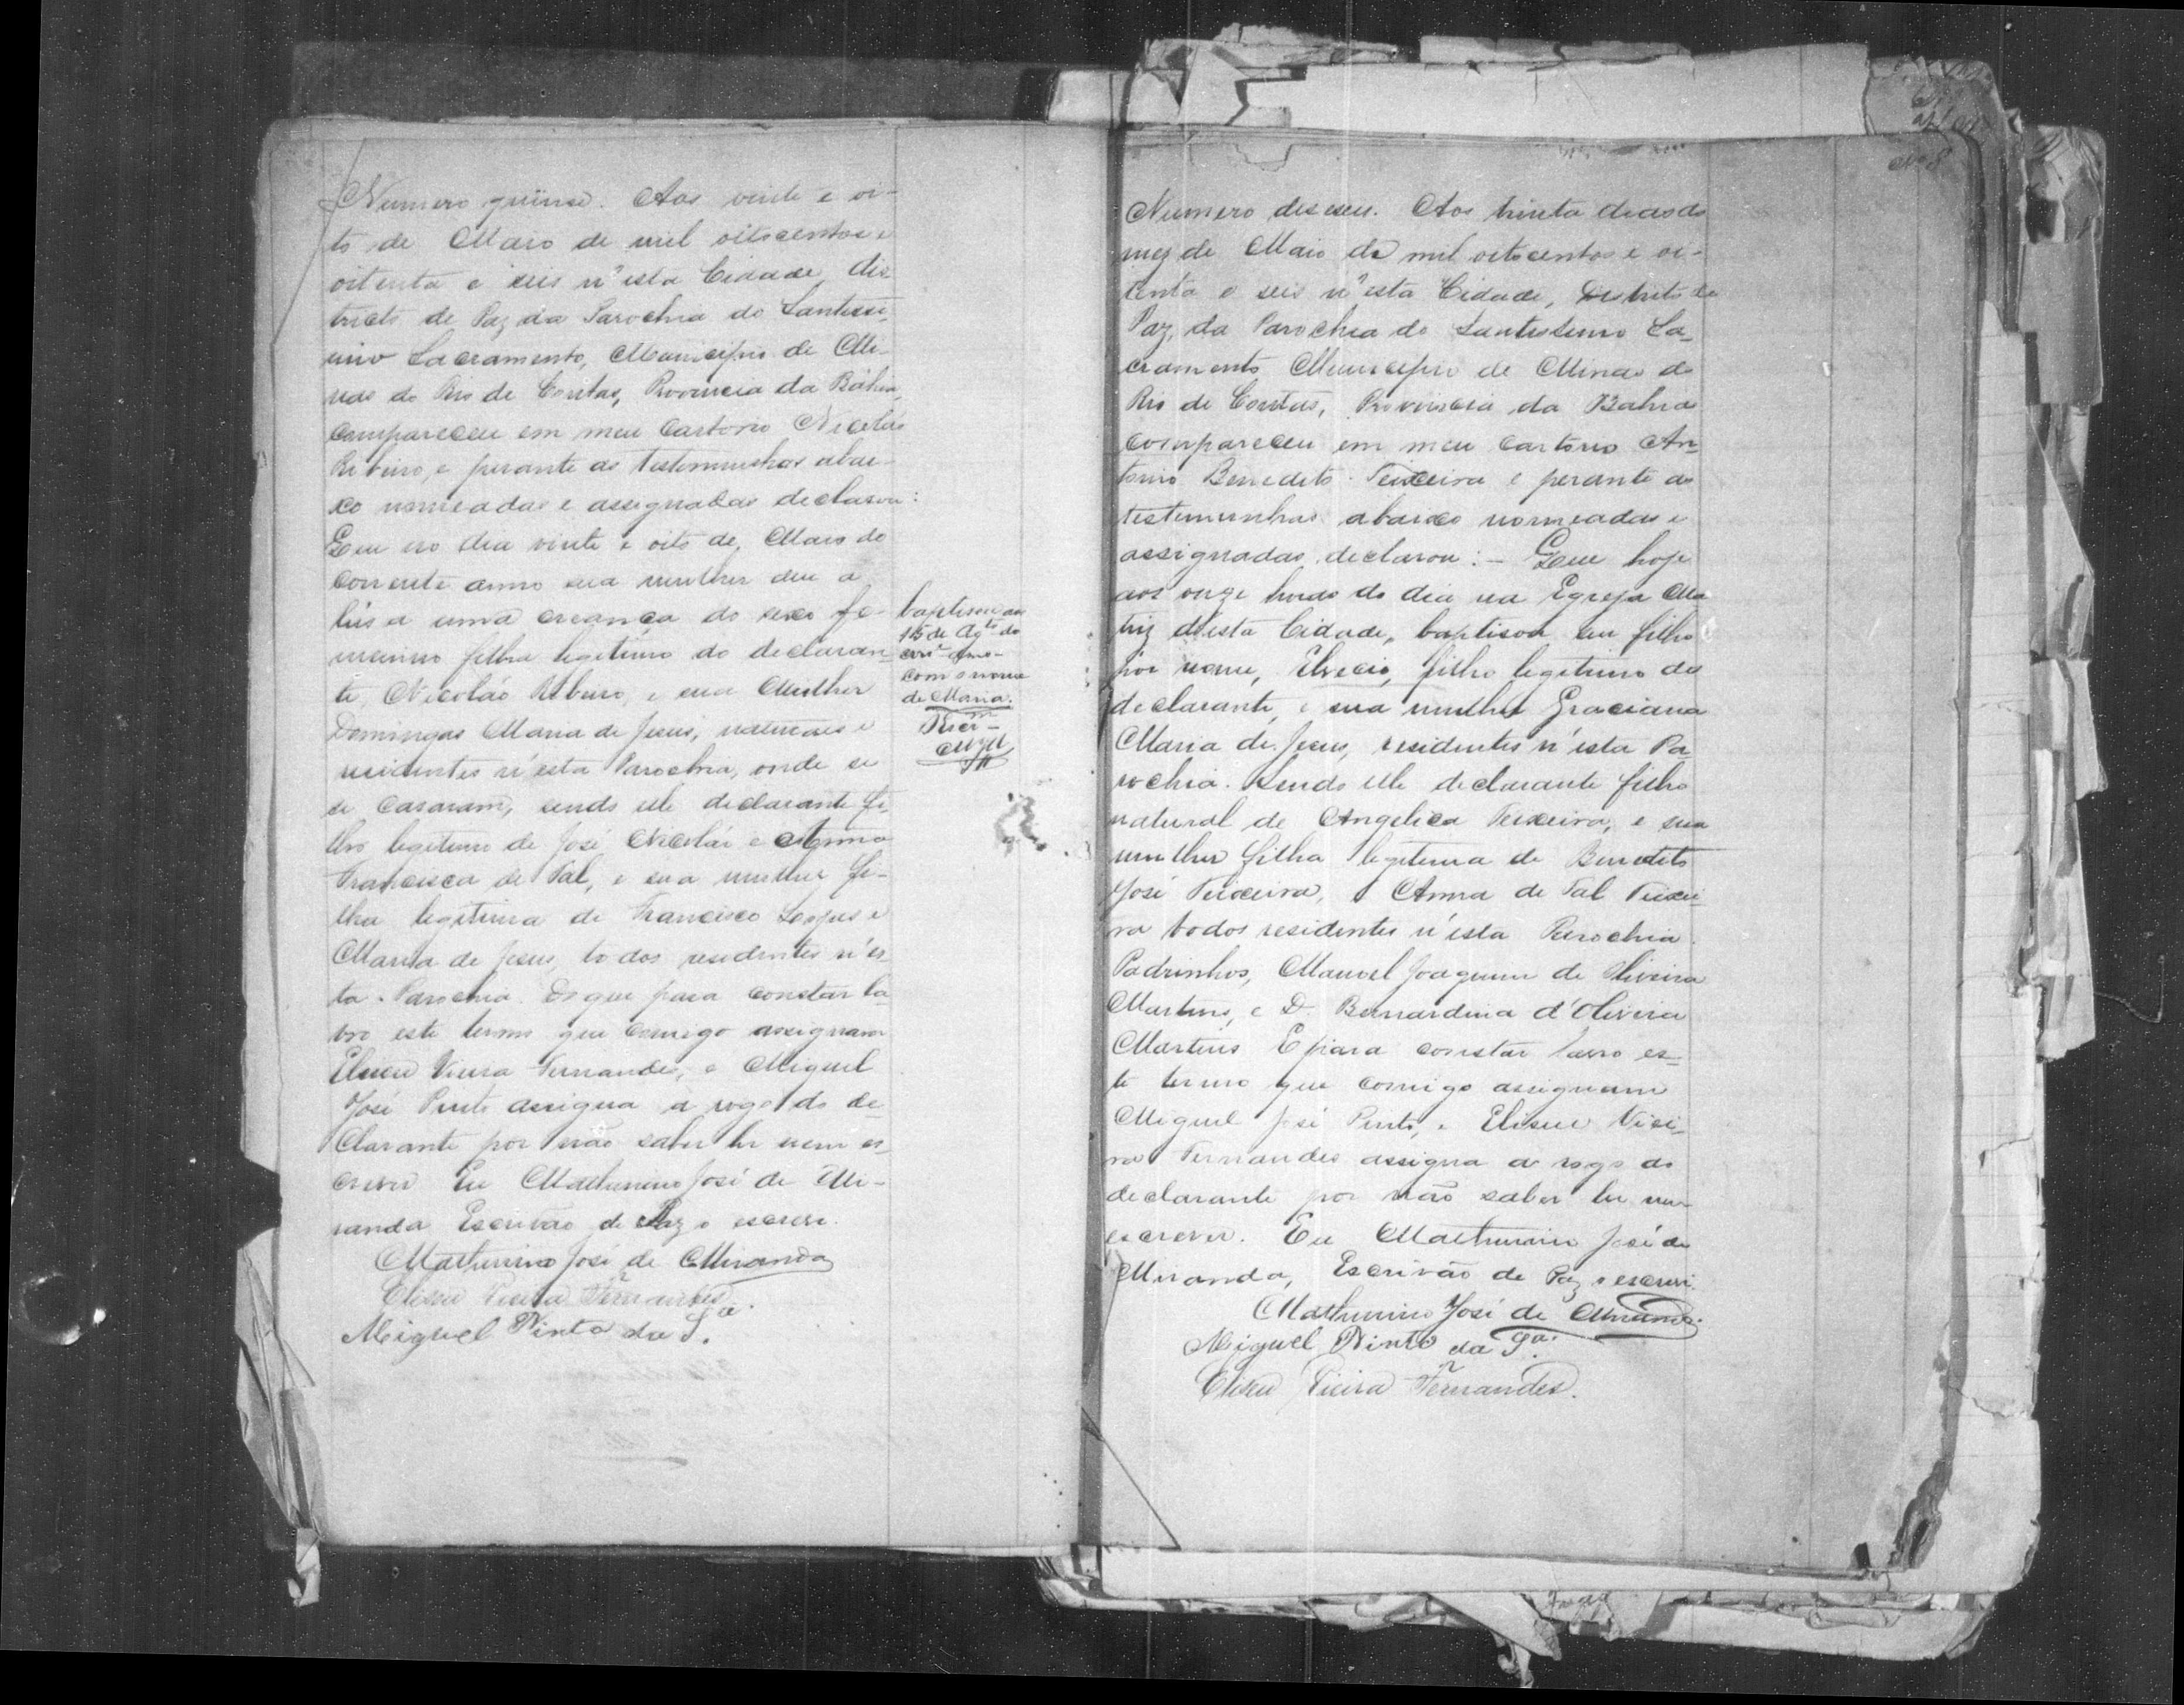 Numero quinse. Aos vinte e oi-
to de Maio de mil oitocentos e
oitenta e seis n'esta Cidade, dis
tricto de Paz da Parochia do Santissi-
mo Sacramento, Municipio de Mi-
nas do Rio de Contas, Provincia da Bahia,
compareceu em meu Cartorio Nicoláo
Ribeiro, e perante as testemunhas abai-
xo nomeadas e assignadas declarou:
Que no dia vinte e oito de Maio do
corrente anno sua mulher deu a
lus a uma creança do sexo fe-
menino filha legitimo do declaran-
te, Nicoláo Ribeiro, e sua Mulher
Domingas Maria de Jesus, naturaes e
residentes n'esta Parochia, onde se
se casaram, sendo elle declarante fi-
lho legitimo de José Nicoláo e Anna
Francisca de Tal, e sua mulher fi-
lha legitima de Francisco Lopes e
Maria de Jesus, todos residentes n'es-
ta Parochia. Do que para constar la
vro este termo que comigo assignam
Eliseu Vieira Fernandes, e Miguel
José Pinto assigna a rogo do de
clarante por não saber ler nem es-
crever Eu Mathurino José de Mi-
randa Escrivão de Paz o escrevi.
Mathurino José de Miranda
Eliseu Vieira Fernandes.
Miguel Pinto da Sª.
baptisou-se
15 de Agto do
corrte anno
com o nome
de Maria.
Nº 8
Numero deseseis. Aos trinta dias do
mez de Maio de mil oitocentos e oi-
tenta e seis n'esta Cidade, Districto de
Paz, da Parochia do Santissimo Sa-
cramento Municipio de Minas do
Rio de Contas, Provincia da Bahia
compareceu em meu cartorio An-
tonio Benedito Teixeira e perante as
testemunhas abaixo nomeadas e
assignadas, declarou: - Que hoje
aos onze horas do dia na Egreja Ma
triz d'esta Cidade, baptisou seu filho
por nome, Elvecio, filho legitimo do
declarante, e sua mulher Graciana
Maria de Jesus, residentes n'esta Pa-
rochia. Sendo elle declarante filho
natural de Angelica Teixeira, e sua
mulher filha legitima de Benedito
José Teixeira, e Anna de Tal Teixei-
ra todos residentes n'esta Parochia.
Padrinhos, Manoel Joaquim de Oliveira
Martins, e D. Bernardina d'Oliveira
Martins E para constar lavro es-
te termo que comigo assignam
Miguel José Pinto, e Eliseu Viei-
ra Fernandes assigna a rogo do
declarante por não saber ler nem
escrever. Eu Mathurino José de
Miranda, Escrivão de Paz o escrevi.
Mathurino José de Miranda.
Miguel Pinto da Sª.
Eliseu Vieira Fernandes.